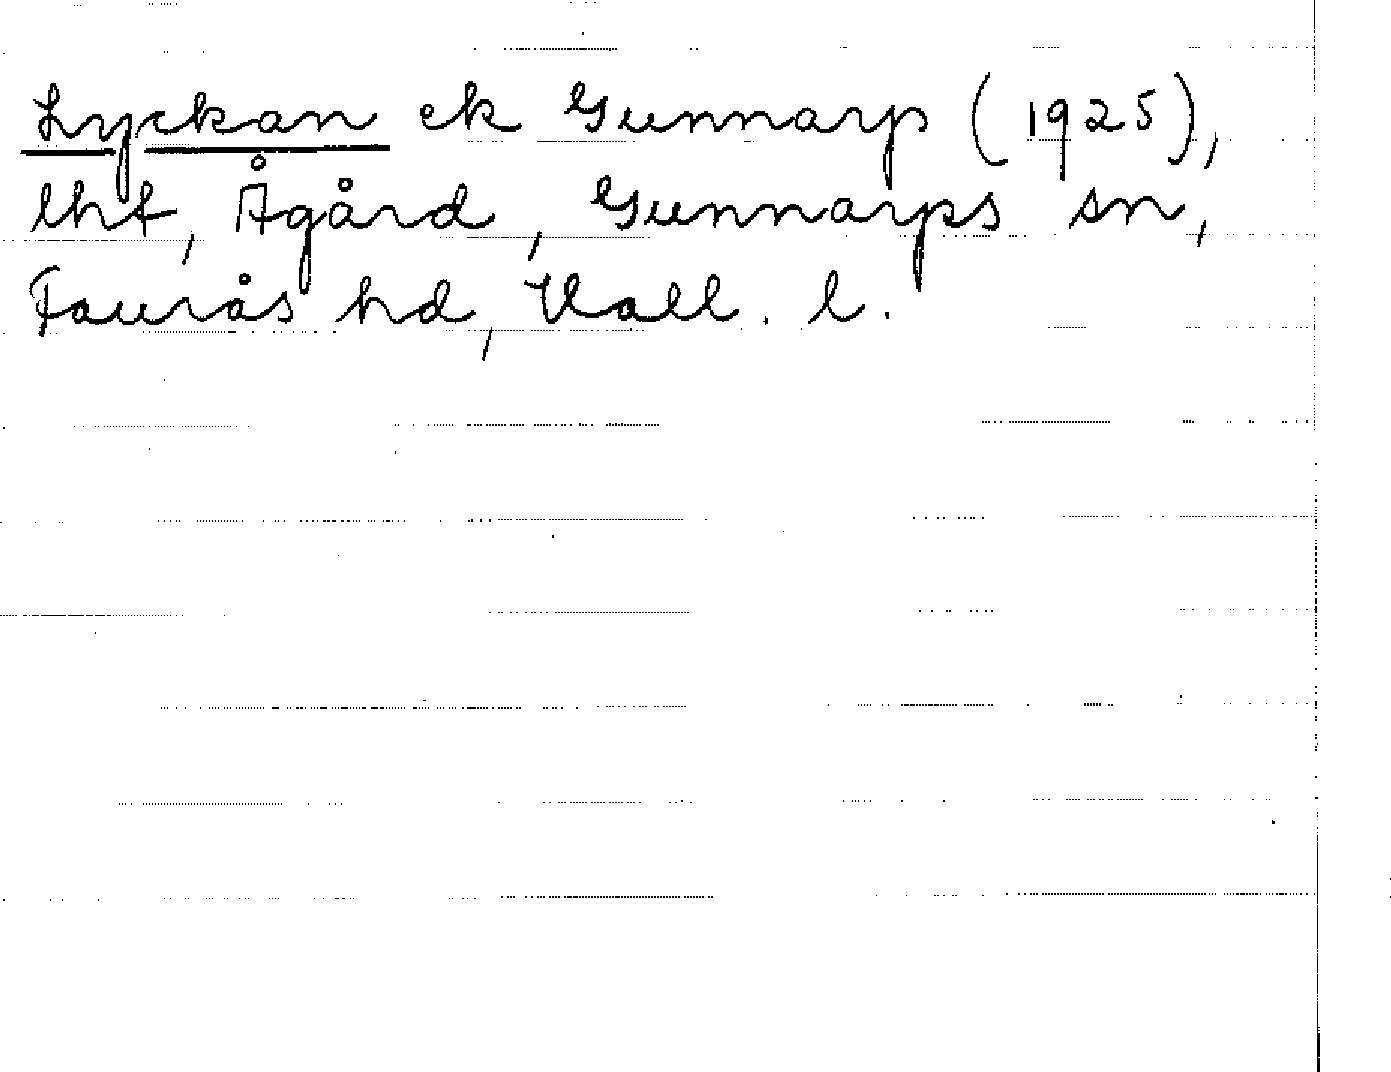 Lyckan ek Gunnarp (1925),
lht, Ågård, Gunnarps sn,
Faurås hd, Hall. l.